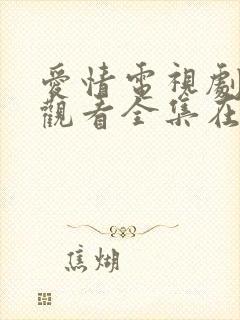 愛情電視劇
觀看全集在
焦煳